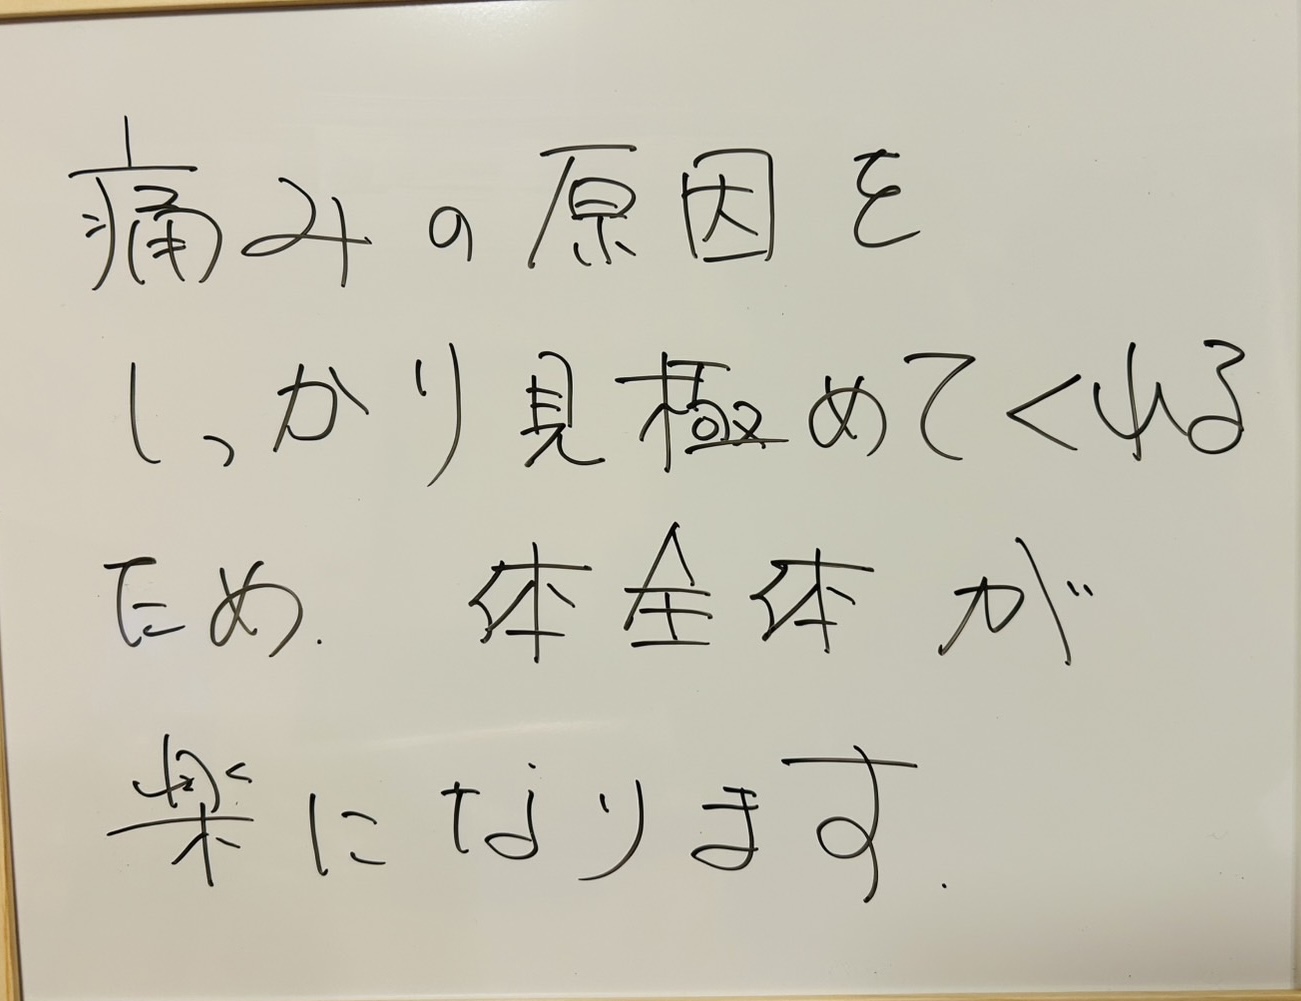 痛みの原因を
しっかり見極めてくれる
ため. 体全体が
楽になります.